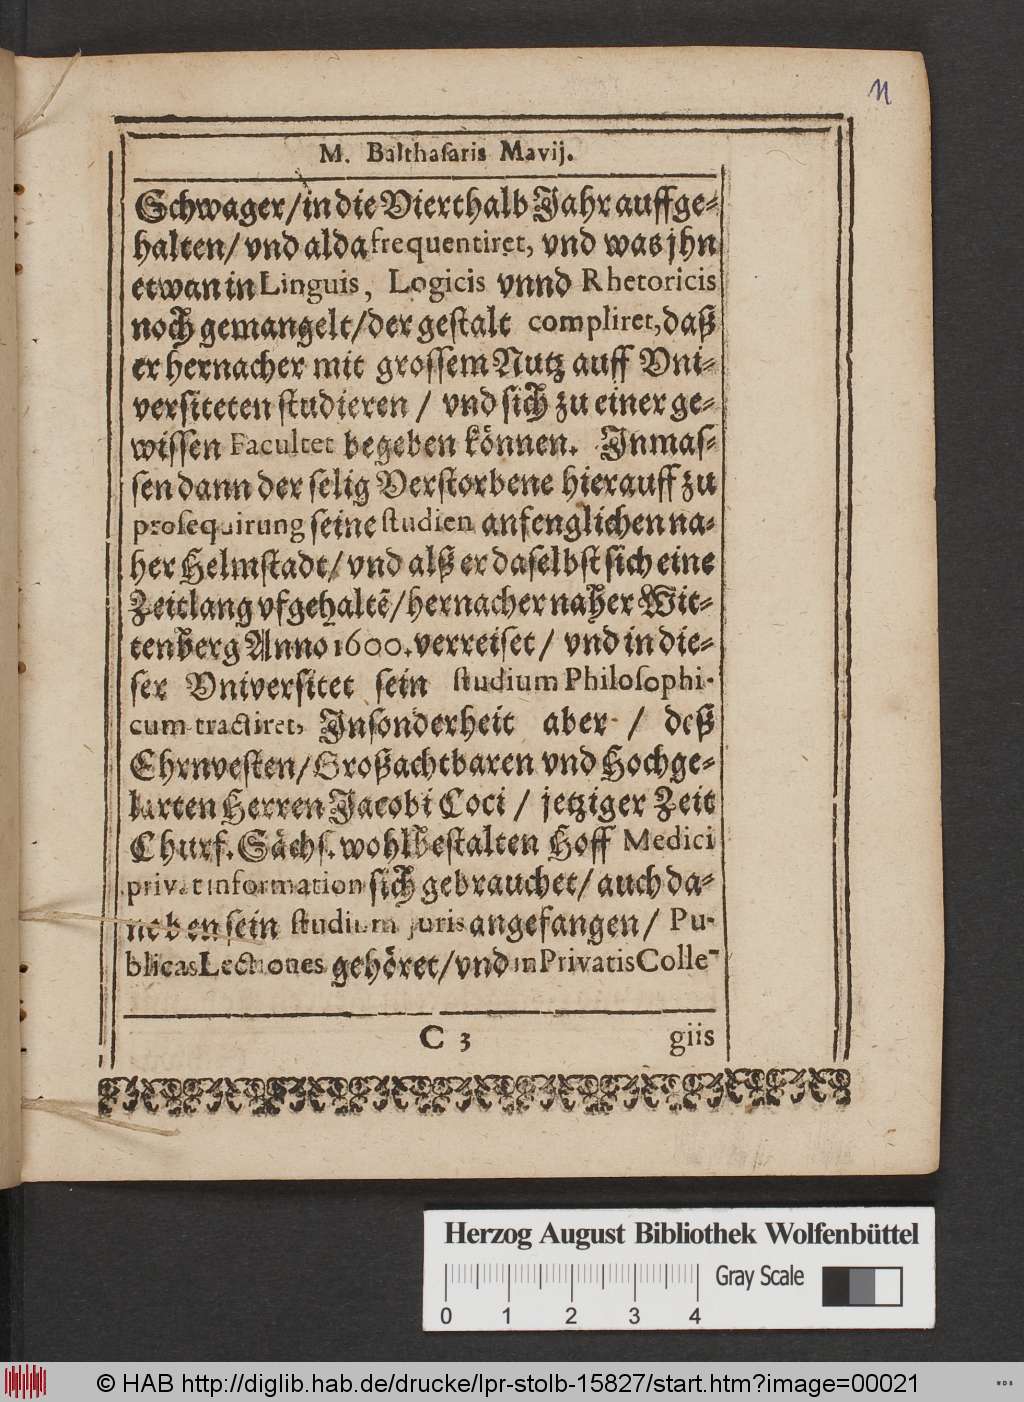 11
M. Balthasaris Mavij.
Schwager/in die Vierthalb Jahr auffge-
halten/ vnd alda frequentiret, vnd was jhn
etwan in Linguis, Logicis vnnd Rhetoricis
noch gemangelt/der gestalt compliret, daß
er hernacher mit grossem Nutz auff Vni-
versiteten studieren / vnd sich zu einer ge-
wissen Facultet begeben können. Inmas-
sen dann der selig Verstorbene hierauff zu
prosequirung seine studien anfenglichen na-
her Helmstadt/ vnd alß er daselbst sich eine
Zeitlang vfgehaltẽ/hernacher naher Wit-
tenberg Anno 1600. verreiset/ vnd in die-
ser Vniversitet sein studium Philosophi-
cum tractiret, Insonderheit aber / deß
Ehrnvesten/Großachtbaren vnd Hochge-
larten Herren Jacobi Coci / jetziger Zeit
Churf. Sächs. wohlbestalten Hoff Medici
privat information sich gebrauchet/ auch da-
neben sein studium juris angefangen/ Pu-
blicas Lectiones gehöret/vnd in Privatis Colle-
C 3 giis
Herzog August Bibliothek Wolfenbüttel
0 1 2 3 4 Gray Scale
© HAB http://diglib.hab.de/drucke/lpr-stolb-15827/start.htm?image=00021